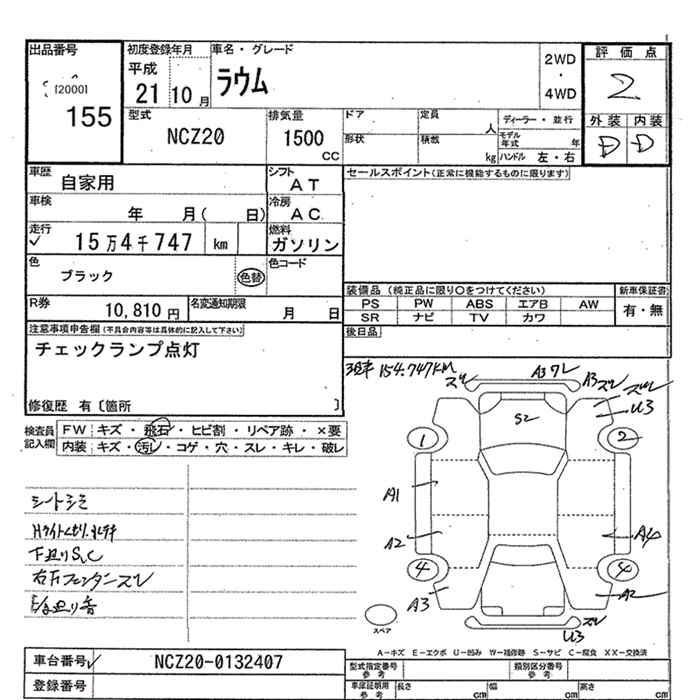 出品番号
[2000]
155
初度登録年月
平成
21 10 月
車名・グレード
ラウム
2WD
・
4WD
評価点
2
外装 内装
D D
型式
NCZ20
排気量
1500
CC
ドア
定員
人
形状
積載
kg
ディーラー・並行
モデル年式 年
ハンドル 左・右
車歴
自家用
シフト
AT
車検
年 月( 日)
冷房
AC
走行
✓ 15万4千747 km
燃料
ガソリン
色
ブラック
色替
色コード
R券
10,810 円
名変通知期限
月 日
セールスポイント(正常に機能するものに限ります)
装備品 (純正品に限り○をつけてください)
新車保証書
PS PW ABS エアB AW
SR ナビ TV カワ
有・無
後日品
注意事項申告欄(不具合内容等は具体的に記入して下さい)
チェックランプ点灯
修復歴 有〔箇所 〕
検査員記入欄
FW キズ・飛石・ヒビ割・リペア跡・×要
内装 キズ・汚レ・コゲ・穴・スレ・キレ・破レ
シートシミ
下廻りS,C
右Fフェンダースレ
154.747KM
スレ
A3 ワレ
A3 スレ
スレ
U3
S2
1
2
A1
A2
A4
4
4
A3
A2
スレ
U3
スペア
A-キズ E-エクボ U-凹み W-補修跡 S-サビ C-腐食 XX-交換済
車台番号✓
NCZ20-0132407
登録番号
型式指定番号
参考
類別区分番号
参考
車庫証明用
参考
長さ cm
幅 cm
高さ cm